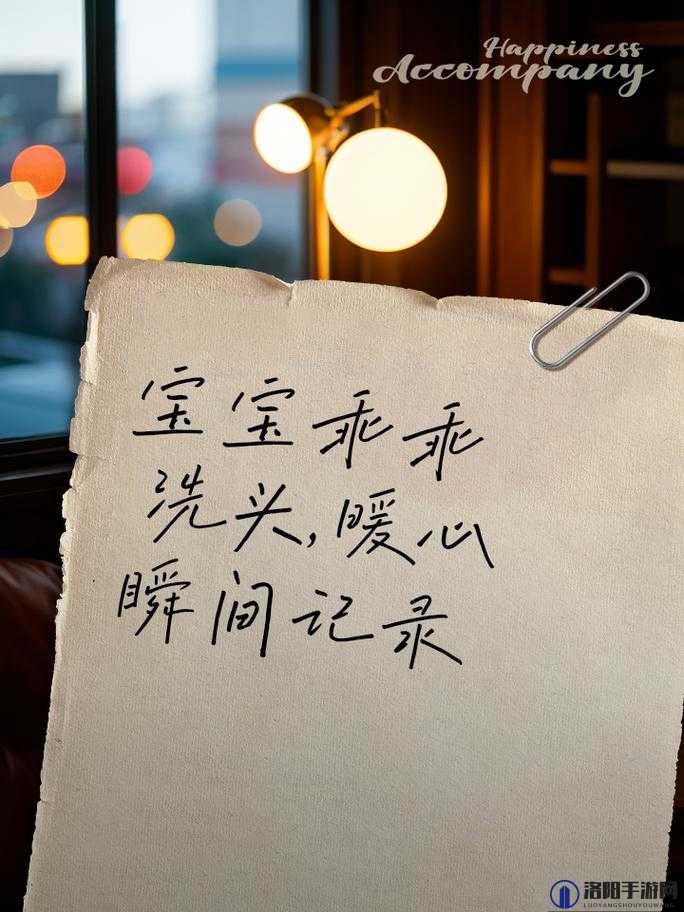 Happiness
Accompany
宝宝乖乖
洗头,暖心
瞬间记录
洛阳手游网
LUOYANGSHOUYOUWANG